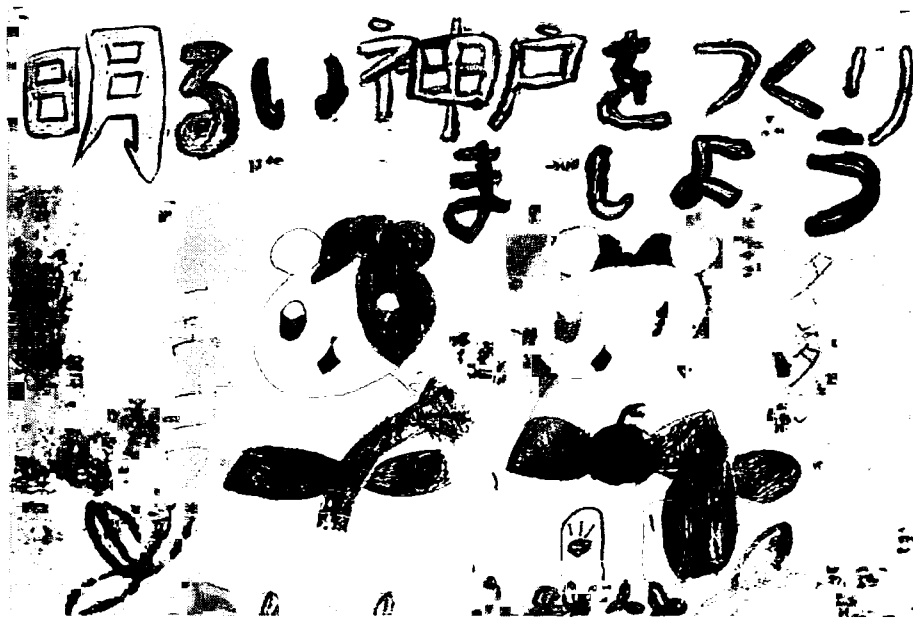 明るい神戸をつくり
ましょう